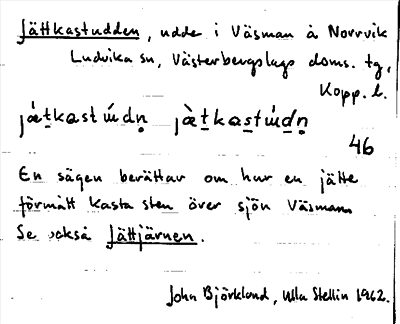 Jättkastudden, udde i Väsman å Norrvik
Ludvika sn, Västerbergslags doms. tg,
Kopp. l.
jǽt̠kast ú́dṇ jæ̀t̠ka̠s̠tú́d̠ṇ
46
En sägen berättar om hur en jätte
förmått kasta sten över sjön Väsman.
Se också Jättjärnen.
John Björklund, Ulla Stellin 1962.